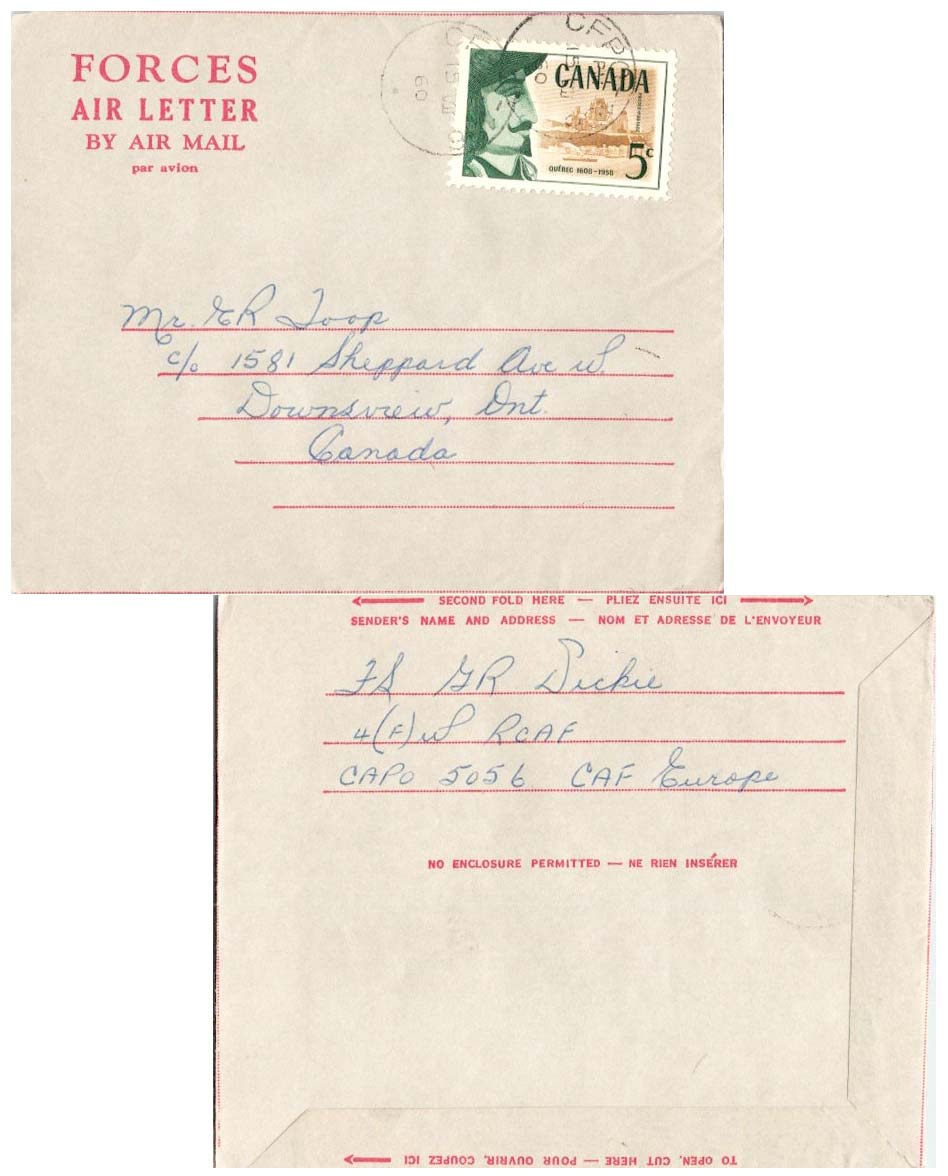 FORCES
AIR LETTER
BY AIR MAIL
par avion
CANADA
5c
QUÉBEC 1608-1958
Mr. ER Toop
c/o 1581 Sheppard Ave W.
Downsview, Ont.
Canada
SECOND FOLD HERE — PLIEZ ENSUITE ICI
SENDER'S NAME AND ADDRESS — NOM ET ADRESSE DE L'ENVOYEUR
FS GR Dickie
4(F)W RCAF
CAPO 5056 CAF Europe
NO ENCLOSURE PERMITTED — NE RIEN INSÉRER
TO OPEN, CUT HERE — POUR OUVRIR, COUPEZ ICI